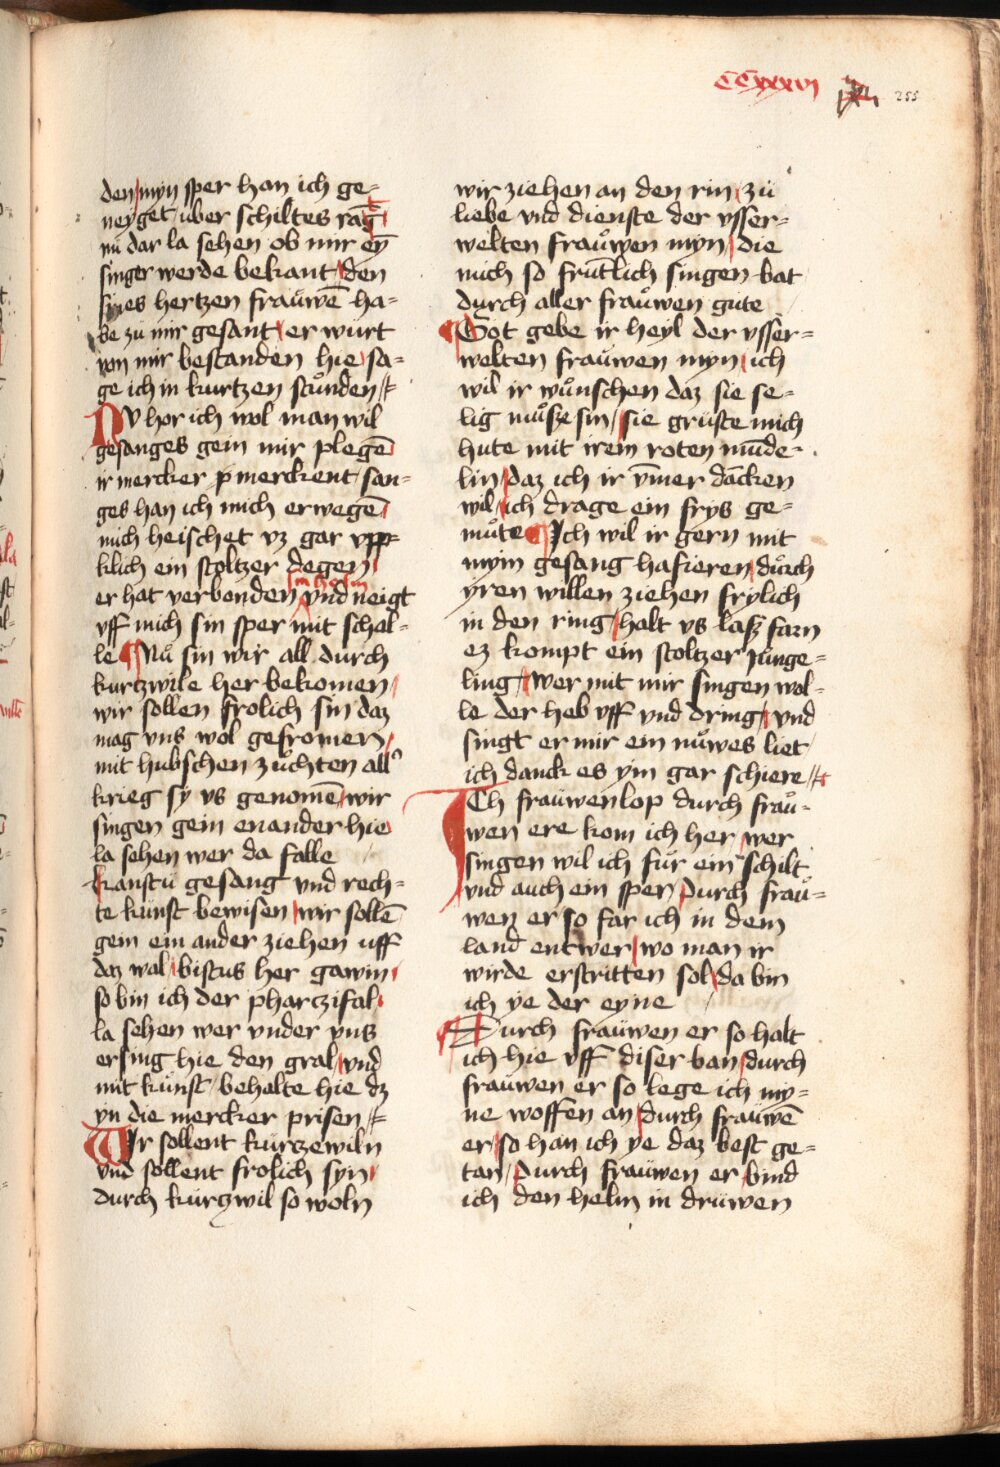 CCxxxvj 255
den / myn sper han ich ge=
neyget / uber schiltes rāt
nü dar la sehen ob mir eȳ
singer werde bekant / den
synes hertzen fraüwē ha=
be zü mir gesant / er würt
von mir bestanden hie / sa=
ge ich in kurtzen stůnden /
NV hor ich wol man wil
gesanges gein mir plegē
ir mercker p merckent san=
ges han ich mich erwegē /
mich heischet vz gar vpp=
klich ein stoltzer degen /
sin helm
er hat verbonden vnd neigt
vff mich sin sper mit schal=
le Nů sin wir all durch
kurtzwile her bekomen /
wir sollen frolich sin daz
mag vns wol gefromen /
mit hubschen zůchten all
krieg sy vs genomē / wir
singen gein enander hie
la sehen wer da falle
kanstu gesang vnd rech=
te kunst bewisen / wir sollē
gem ein ander ziehen uff
daz wal / bistus her gawin /
so bin ich der phartzifal /
la sehen wer vnder vns
ersing hie den gral / vnd
mit kůnst behalte hie dz
yn die mercker prisen /
WIr sollent kurtzewiln
vnd sollent frolich syn /
durch kürtzwil so woln
wir ziehen an den rin / zü
liebe vnd dienste der vsser=
welten fraůwen myn / die
mich so frūtlich singen bat
durch aller fraůwen gute
Got gebe ir heyl der vsser=
welten fraüwen myn / ich
wil ir wůnschen daz sie se=
lig můsze sin / sie grüste mich
hute mit irem roten mūde=
lin / daz ich ir ymer dācken
wil / ich drage ein frys ge=
můte Ich wil ir gern mit
mym gesang hafieren / dürch
yren willen ziehen frylich
in den ring / halt vs lasz farn
ez kompt ein stoltzer jünge=
ling / wer mit mir singen wol=
le der heb vff vnd dring / vnd
singt er mir ein nůwes liet
ich danck es ym gar schiere /
ICh fraüwenlop durch fraů=
wen ere kom ich her / wer
singen wil ich für ein schilt
vnd auch ein sper / durch fraü=
wen er so far ich in dem
land entwer / wo man ir
wirde erstritten sol / da bin
ich ye der eyne
Durch fraüwen er so halt
ich hie vff diser ban / durch
fraüwen er so lege ich my=
ne woffen an / durch fraüwē
er / so han ich ye daz best ge=
tan / durch fraüwen er / bind
ich den helm in drüwen